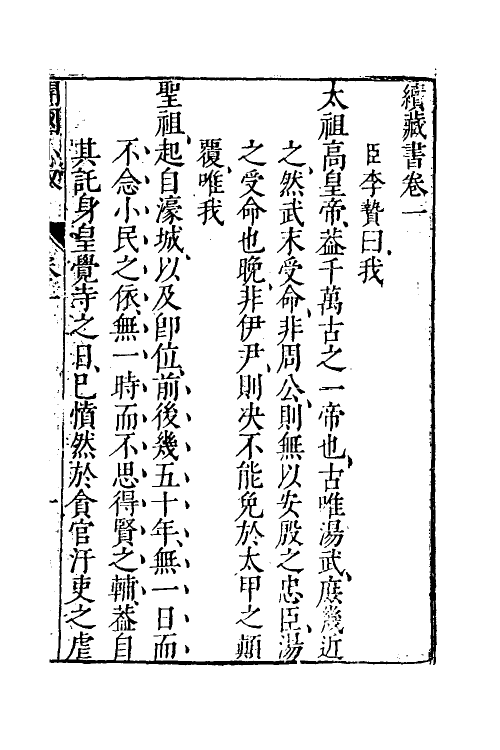 續藏書卷一
臣李贄曰我
太祖高皇帝蓋千萬古之一帝也古唯湯武庶幾近
之然武末受命非周公則無以安殷之忠臣湯
之受命也晚非伊尹則决不能免於太甲之顛
覆唯我
聖祖起自濠城以及卽位前後幾五十年無一日而
不念小民之依無一時而不思得賢之輔葢自
其託身皇覺寺之日已憤然於貪官汙吏之虐
開國
卷一
一